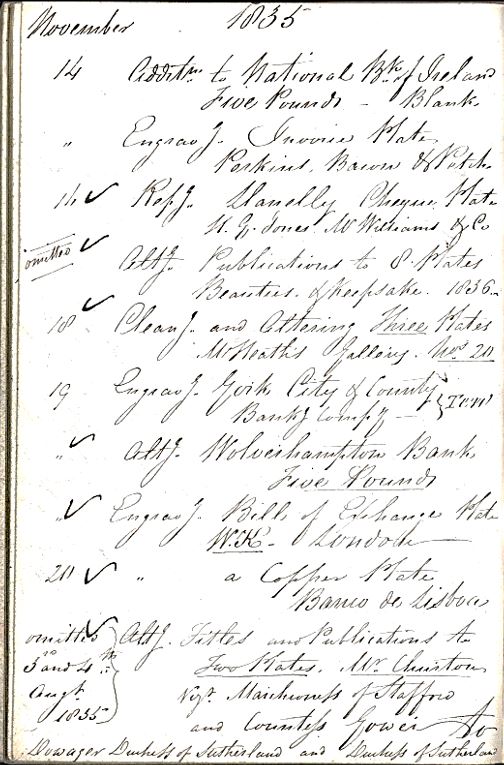 November 1835
14 Additn. to National Bk. of Ireland
Five Pounds - Blank
" Engravg. Invoice Plate
Perkins, Bacon & Petch
14 ✓ Repg. Llanelly Cheque Plate
H. G. Jones. McWilliams & Co
omitted ✓ Altg. Publications to 8 Plates
Beauties. & Keepsake. 1836 -
18 ✓ Cleang. and Altering Three Plates
Mr Heath's Gallery. Nos. 20
19 Engravg. York City & County
Bankg. Compy - } Ten
" ✓ Altg. Wolverhampton Bank
Five Pounds
" ✓ Engravg. Bills of Exchange Plate
W.K. - London
20 ✓ " a Copper Plate
Banco de Lisboa
omitted ✓ Altg. Titles and Publications to
3rd and 4th Two Plates. Mr.
Augt. Vizt. Marchioness of Stafford
1835 and Countess Gower to
Dowager Duchess of Sutherland and Duchess of Sutherland